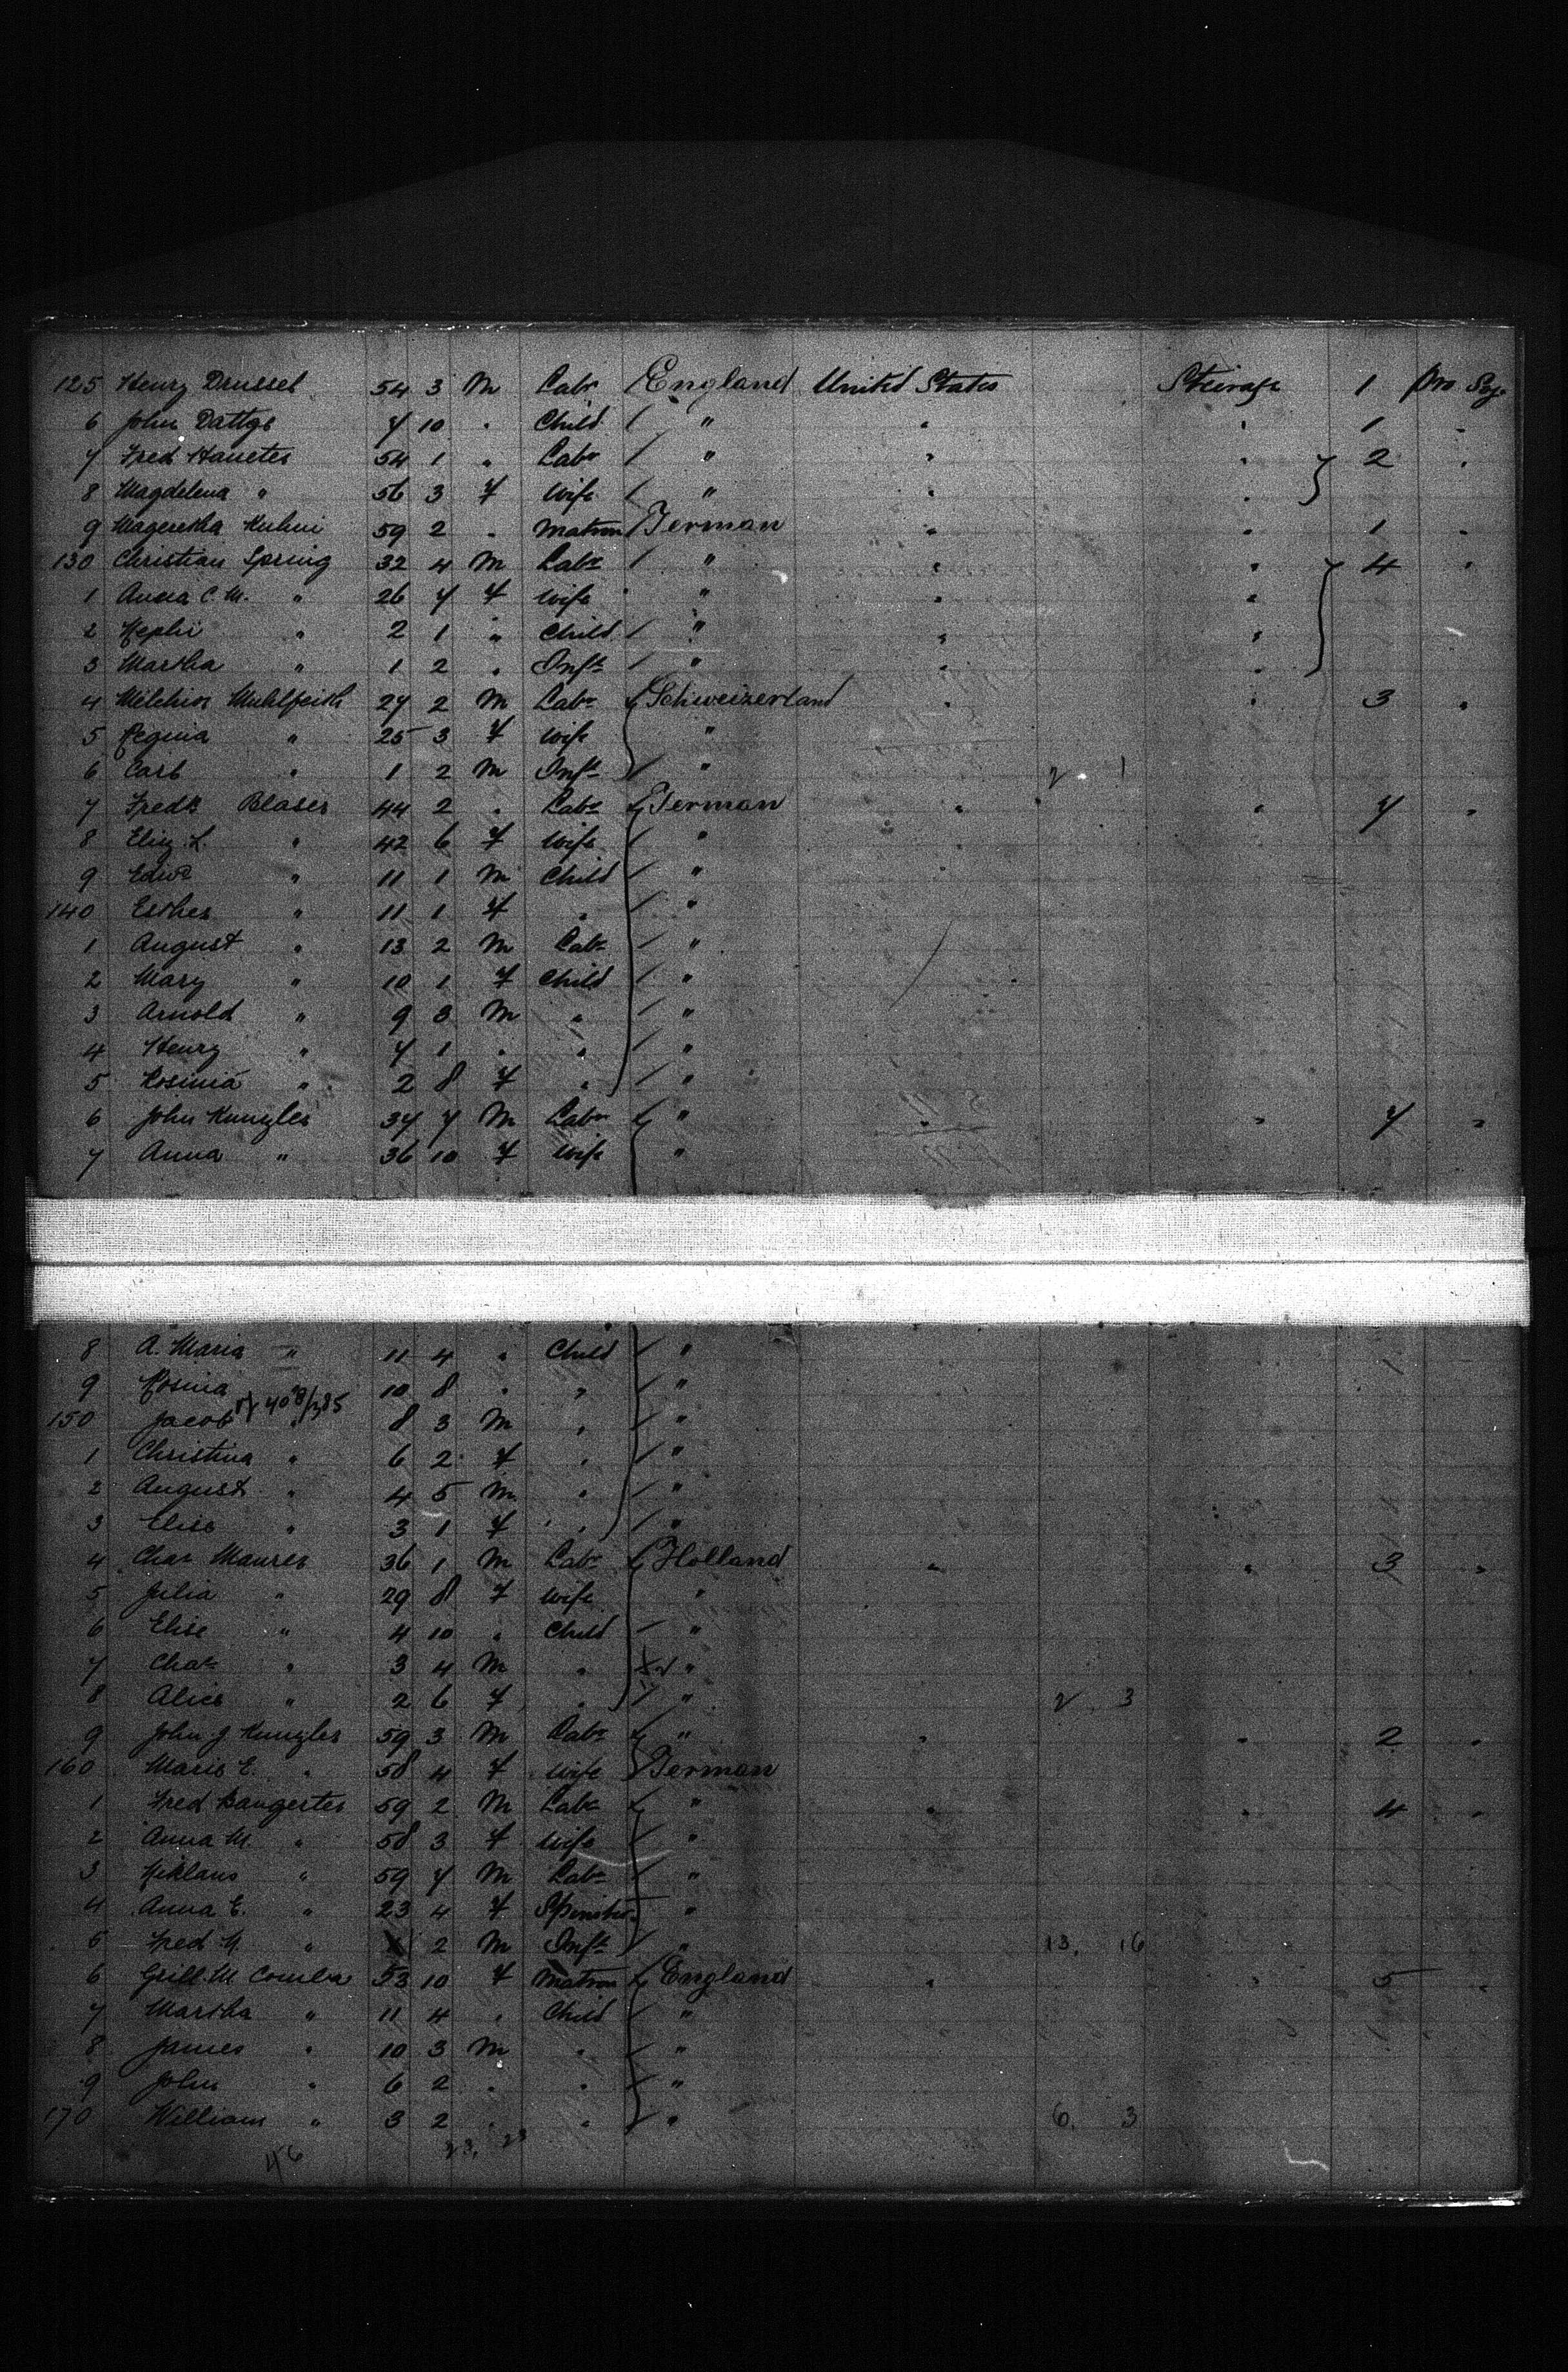 125 Henry Drussel 54 3 M Labr England United States Steirage 1 pro Soj.
6 John Dattge 7 10 " Child " " " 1 "
7 Fred Haueter 54 1 " Labr " " " 2 "
8 Magdelena " 56 3 F Wife " " "
9 Mageretha Kuhni 59 2 " Matron German " " 1 "
130 Christian Spring 32 4 M Labr " " " 4 "
1 Anna C. M. " 26 7 F Wife " " "
2 Nephi " 2 1 " Child " " "
3 Martha " 1 2 " Inft " " "
4 Melchior 27 2 M Labr Schweizerland " " 3 "
5 Regina " 25 3 F Wife "
6 Carl " 1 2 M Inft " 2 1
7 Fredk Blaser 44 2 " Labr German " " 7 "
8 Eliz. L. " 42 6 F Wife "
9 Edwd " 11 1 M Child "
140 Esther " 11 1 F " "
1 August " 13 2 M Labr "
2 Mary " 10 1 F Child "
3 Arnold " 9 3 M " "
4 Henry " 7 1 " " "
5 Rosinia " 2 8 F " "
6 John Kunzler 37 7 M Labr " " " 7 "
7 Anna " 36 10 F Wife "
8 A. Maria " 11 4 " Child "
9 Rosina 10 8 " " "
150 Jacob " 8 3 M " "
1 Christina " 6 2 F " "
2 August " 4 5 M " "
3 Elise " 3 1 F " "
4 Chas Maurer 36 1 M Labr Holland " " 3 "
5 Julia " 29 8 F Wife "
6 Elise " 4 10 " Child "
7 Chas " 3 4 M " "
8 Alice " 2 6 F " " 2 3
9 John J Kunzler 59 3 M Labr " " " 2 "
160 Marie E. " 58 4 F Wife German
1 Fred Bangerter 59 2 M Labr " " " 4 "
2 Anna M. " 58 3 F Wife "
3 Niklaus " 59 7 M Labr "
4 Anna E. " 23 4 F Spinster "
5 Fred N. " 1 2 M Inft " 13. 16
6 Grill. M. Coombe 53 10 F Matron England " " 5 "
7 Martha " 11 4 " Child "
8 James " 10 3 M " "
9 John " 6 2 " " "
170 William " 3 2 " " " 6. 3
46 23. 23